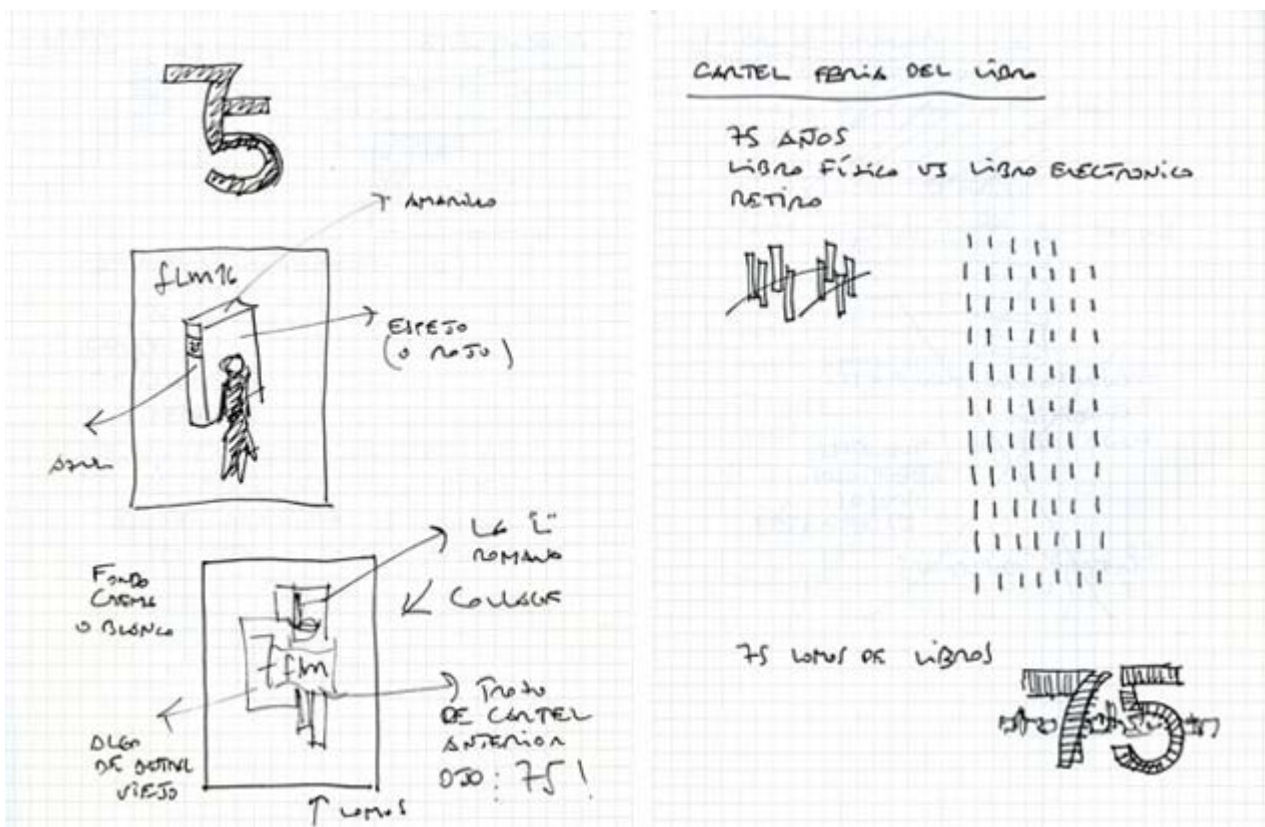 75
AMARILLO
flm16
ESPEJO
(O ROJO)
AZUL
LA "L"
ROMANA
COLLAGE
FONDO
CREMA
O BLANCO
flm
TROZO
DE CARTEL
ANTERIOR
OJO: 75!
ALGO
DE
VIEJO
LOMOS
CARTEL FERIA DEL LIBRO
75 AÑOS
LIBRO FÍSICO VS LIBRO ELECTRONICO
RETIRO
75 LOMOS DE LIBROS
75